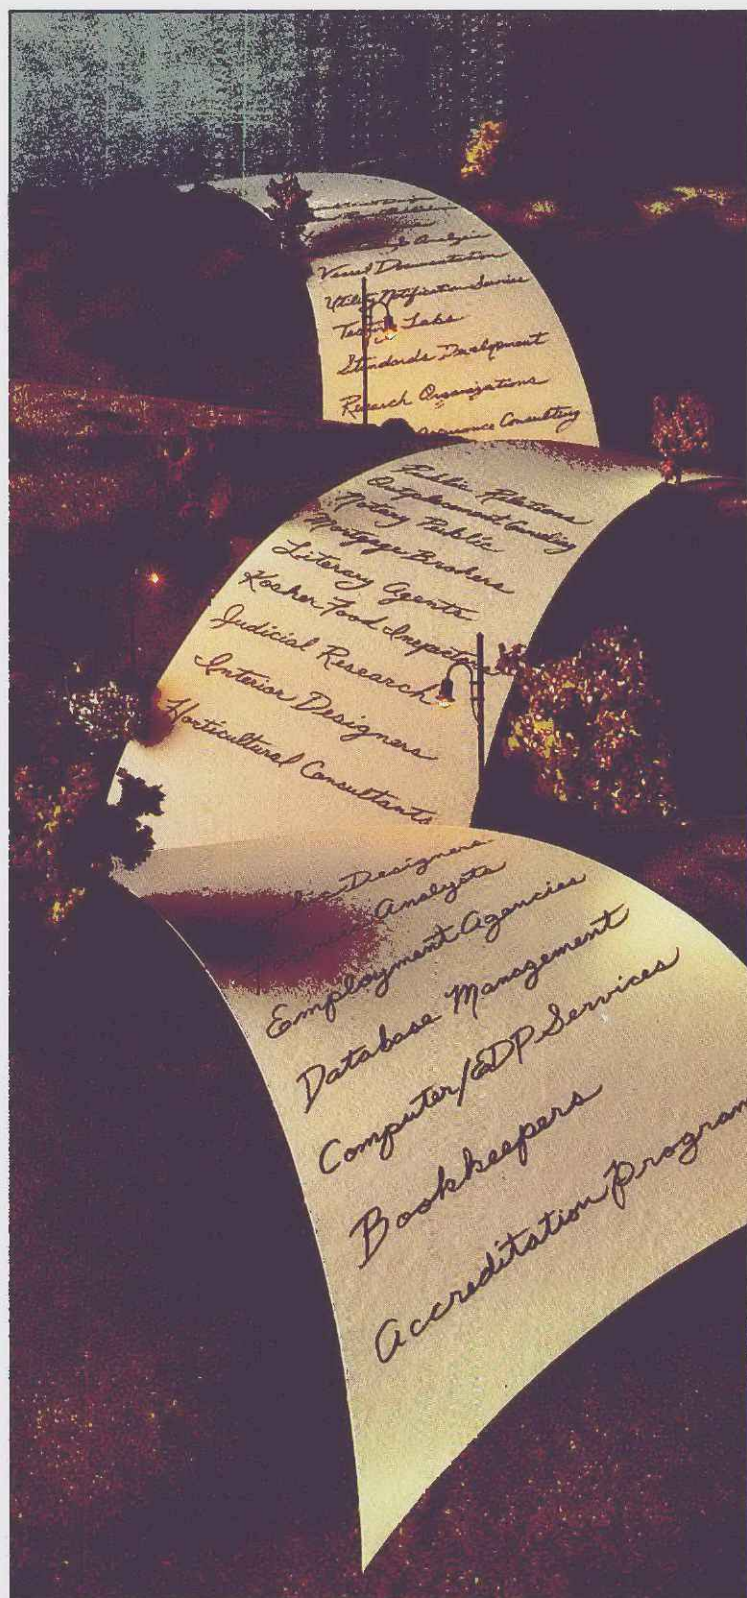 Analysis
Vessel Documentation
Utility Notification Service
Testing Labs
Standards Development
Research Organizations
Consulting
Public Relations
Outplacement
Notary Public
Mortgage Brokers
Literary Agents
Kosher Food Inspectors
Judicial Research
Interior Designers
Horticultural Consultants
Designers
Analysts
Employment Agencies
Database Management
Computer/EDP Services
Bookkeepers
Accreditation Program